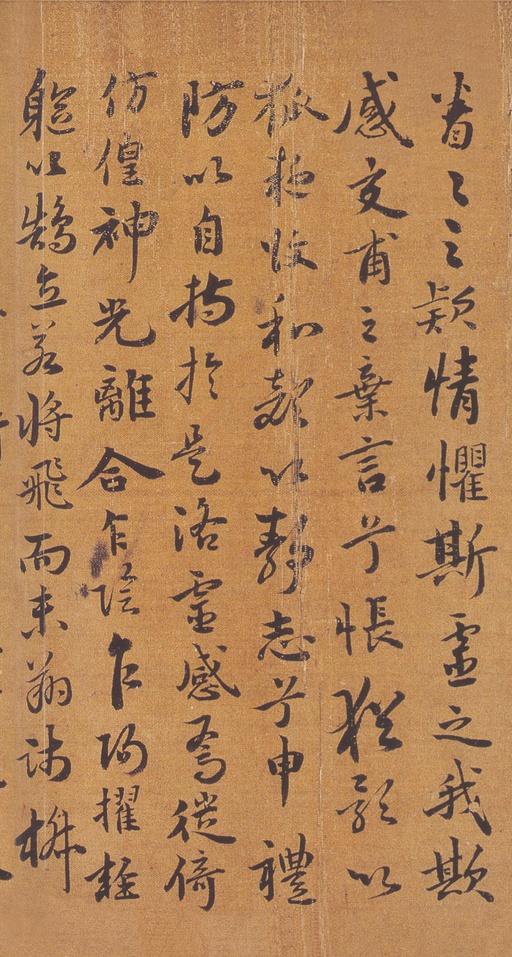 眷々之款情懼斯靈之我欺
感交甫之棄言兮悵猶豫以
狐疑收和顏以靜志兮申禮
防以自持於是洛靈感焉徙倚
仿偟神光離合乍陰乍陽擢輕
軀以鵠立若將飛而未翔踐椒